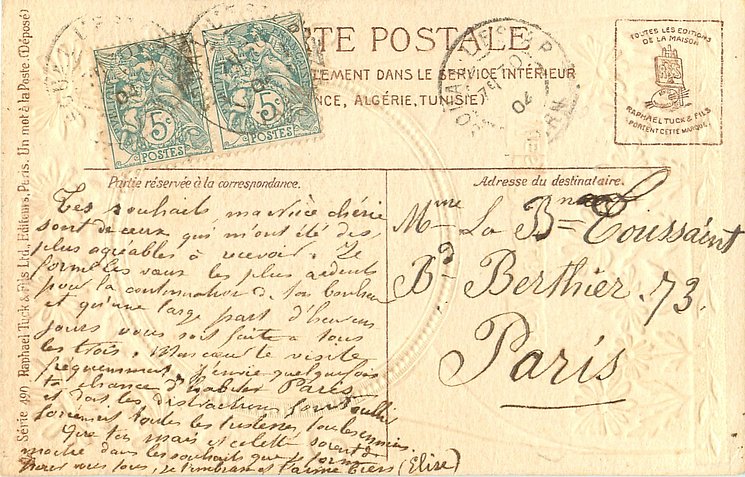 CARTE POSTALE
LEMENT DANS LE SERVICE INTÉRIEUR
NCE, ALGÉRIE, TUNISIE)
TOUTES LES EDITIONS
DE LA MAISON
RAPHAEL TUCK & FILS
PORTENT CETTE MARQUE
5c
POSTES
5c
POSTES
Série 490 Raphael Tuck & Fils Ltd. Editeurs, Paris. Un mot à la Poste (Déposé)
Partie réservée à la correspondance.
Tes souhaits, ma chérie
sont de ceux qui m'ont été des
plus agréables à recevoir. Je
forme les vœux les plus ardents
pour la continuation de ton bonheur
et qu'une large part d'heureux
jours vous soit faite à tous
les trois. Mon cœur te visite
fréquemment. J'envie quelquefois
ta chance d'habiter Paris
et dont les distractions font oublier
forcément toutes les tristesses
Que ton mari et Colette
dans les souhaits que je forme
pour vous tous, je t'embrasse et t'aime (Elise)
Adresse du destinataire.
Mme La Bnne Toussaint
Bd Berthier. 73.
Paris